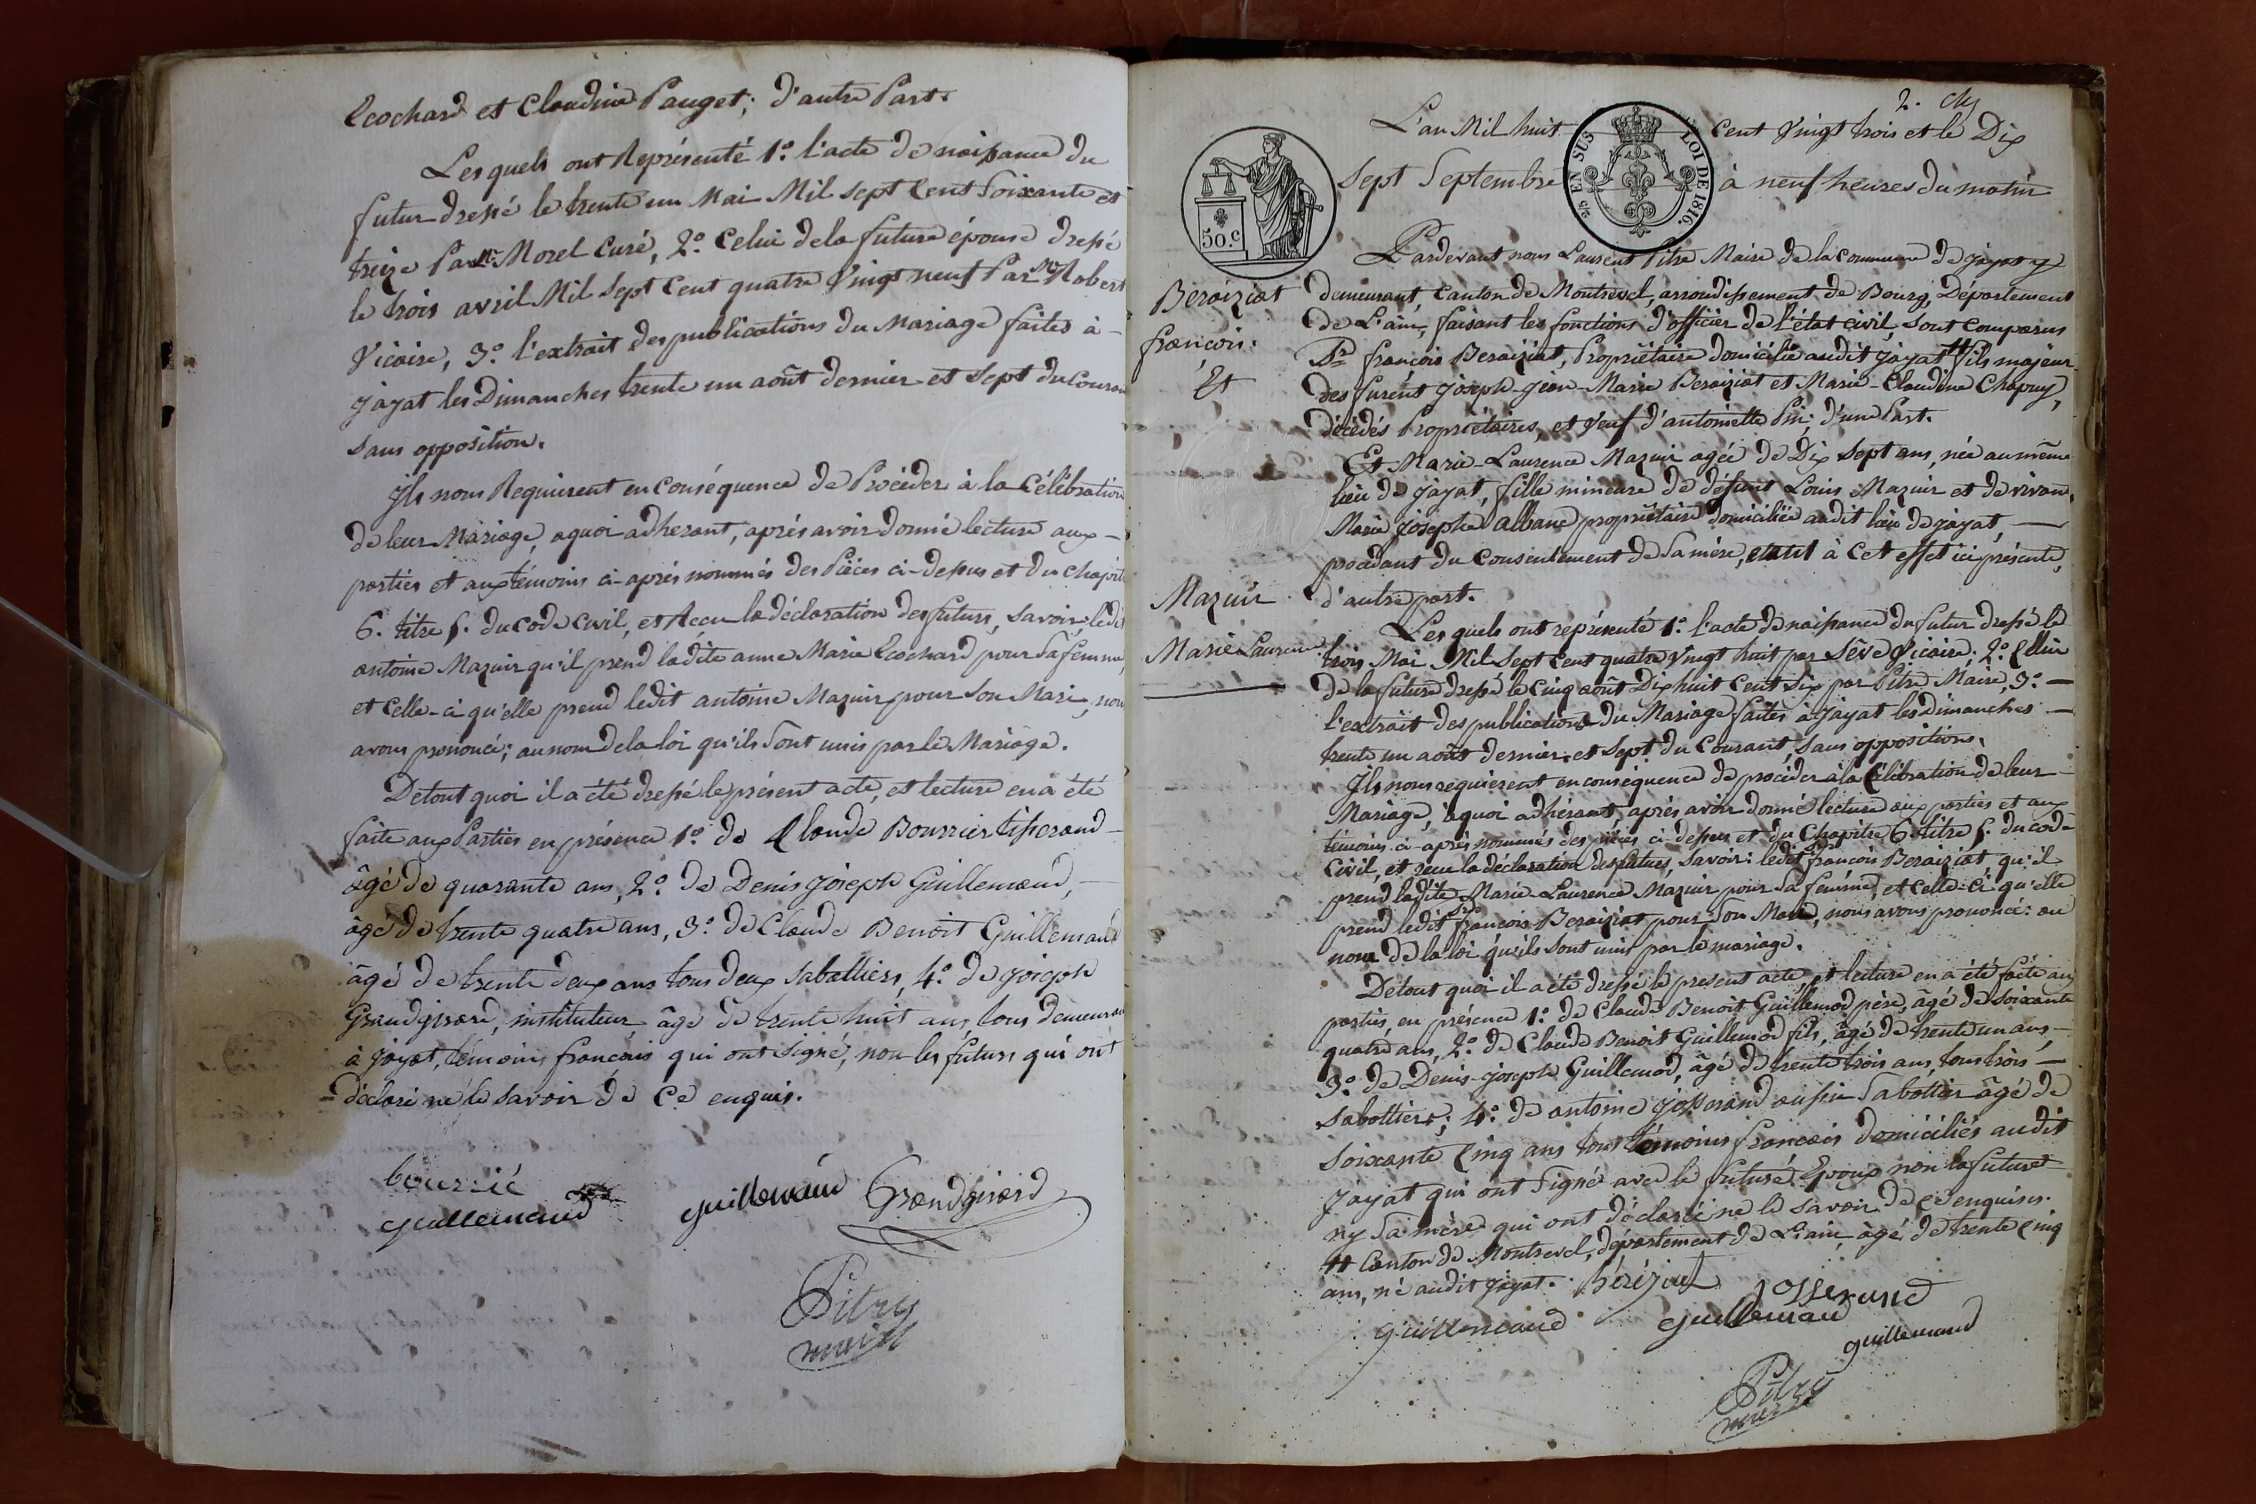 Ecochard et Claudine Pauget; d'autre Part.
Lesquels ont Représenté 1.° l'acte de naissance du
futur dressé le trente un Mai Mil Sept Cent Soixante et
treize Par Mr. Morel Curé, 2.° Celui de la future épouse dressé
le trois avril Mil Sept Cent quatre Vingt neuf Par Mr Robert
Vicaire, 3.° l'extrait des publications du Mariage faites à -
jayat les Dimanches trente un août dernier et Sept du Courant
Sans opposition.
Ils nous Requierent en conséquence de Procéder à la Célébration
de leur Mariage, aquoi adherant, après avoir donné lecture aux -
parties et aux témoins ci-après nommés des Pièces ci-dessus et du Chapit
6. titre 5. du Code Civil, et Recu la déclaration des futurs, Savoir, ledit
antoine Mazuir qu'il prend ladite anne Marie Ecochard pour Sa femme,
et Celle-ci qu'elle prend ledit antoine Mazuir pour Son Mari, nous
avons prononcé; au nom de la loi qu'ils Sont unis par le Mariage.
Detout quoi il a été dressé le présent acte, et lecture en a été
faite aux Parties en présence 1.° de Claude Bourrier tisserand -
âgé de quarante ans, 2.° de Denis joseph Guillemaud, -
âgé de trente quatre ans, 3.° de Claude Benoit Guillemaud
âgé de trente deux ans tous deux Sabottiers, 4.° de joseph
Grandgirard, instituteur âgé de trente huit ans, tous demeurant
à jayat, témoins francais qui ont Signé, non les futurs qui ont
déclaré ne le Savoir de Ce enquis.
bourrié
guillemaud guillemaud Grandgirard
Pitre
maire
2.
L'an Mil huit Cent Vingt trois et le Dix
Sept Septembre à neuf heures du matin
2/5 EN SUS LOI DE 1816.
50.c
Pardevant nous Laurent Pitre Maire de la Commune de jayat y
Beraiziat
françois.
Et
demeurant, Canton de Montrevel, arrondissement de Bourg, Département
de L'ain, faisant les fonctions d'officier de l'état civil, Sont Comparus
Sr. françois Beraiziat, Propriétaire domicilié audit jayat # fils majeur
des furent joseph-jean-Marie Beraiziat et Marie-Claudine Chapuy,
décédés Propriétaires, et Veuf d'antoinette Pin; d'une Part.
Et Marie-Laurence Mazuir agée de Dix Sept ans, née au même
lieu de jayat, fille mineure de défunt Louis Mazuir et de vivant
Marie josephe albane propriétaire domiciliée audit lieu de jayat, -
procédant du Consentement de Sa mère, à Cet effet ici présente,
d'autre part.
Mazuir
Marie Laurence
Lesquels ont représenté 1.° l'acte de naissance du futur dressé le
trois Mai Mil Sept Cent quatre Vingt huit par Sève Vicaire, 2.° Celui
de la future dressé le Cinq août Dix huit Cent Six par Pitre Maire, 3.° -
l'extrait des publications du Mariage faites à jayat les dimanches -
trente un août dernier et Sept du Courant Sans oppositions.
Ils nous requierent en conséquence de procéder à la Célébration de leur -
Mariage, àquoi adhérant, après avoir donné lecture aux parties et aux
témoins ci-après nommés des pièces ci-dessus et du Chapitre 6. titre 5. du code
Civil, et recu la déclaration des futurs, Savoir: ledit françois Beraiziat qu'il
prend ladite Marie-Laurence Mazuir pour Sa femme, et Celle-Ci qu'elle
prend ledit Sr. françois Beraiziat pour Son Mari, nous avons prononcé: au
nom de la loi qu'ils Sont unis par le mariage.
Detout quoi il a été dressé le present acte, et lecture en a été faite aux
parties, en présence 1.° de Claude Benoit Guillemod père, âgé de Soixante
quatre ans, 2.° de Claude Benoit Guillemod fils, âgé de trente un ans, -
3.° de Denis-joseph Guillemod, âgé de trente trois ans, tous trois -
Sabottiers, 4.° de antoine josserand aussi Sabottier âgé de
Soixante Cinq ans tous témoins francais domiciliés audit
jayat qui ont Signé avec le futur Epoux non la future
ny Sa mère qui ont déclaré ne le Savoir de ce enquises.
# Canton de Montrevel, département de L'ain, âgé de trente Cinq
ans, né audit jayat. béréziat josserand
guillemaud guillemaud
guillemaud
Pitre
maire